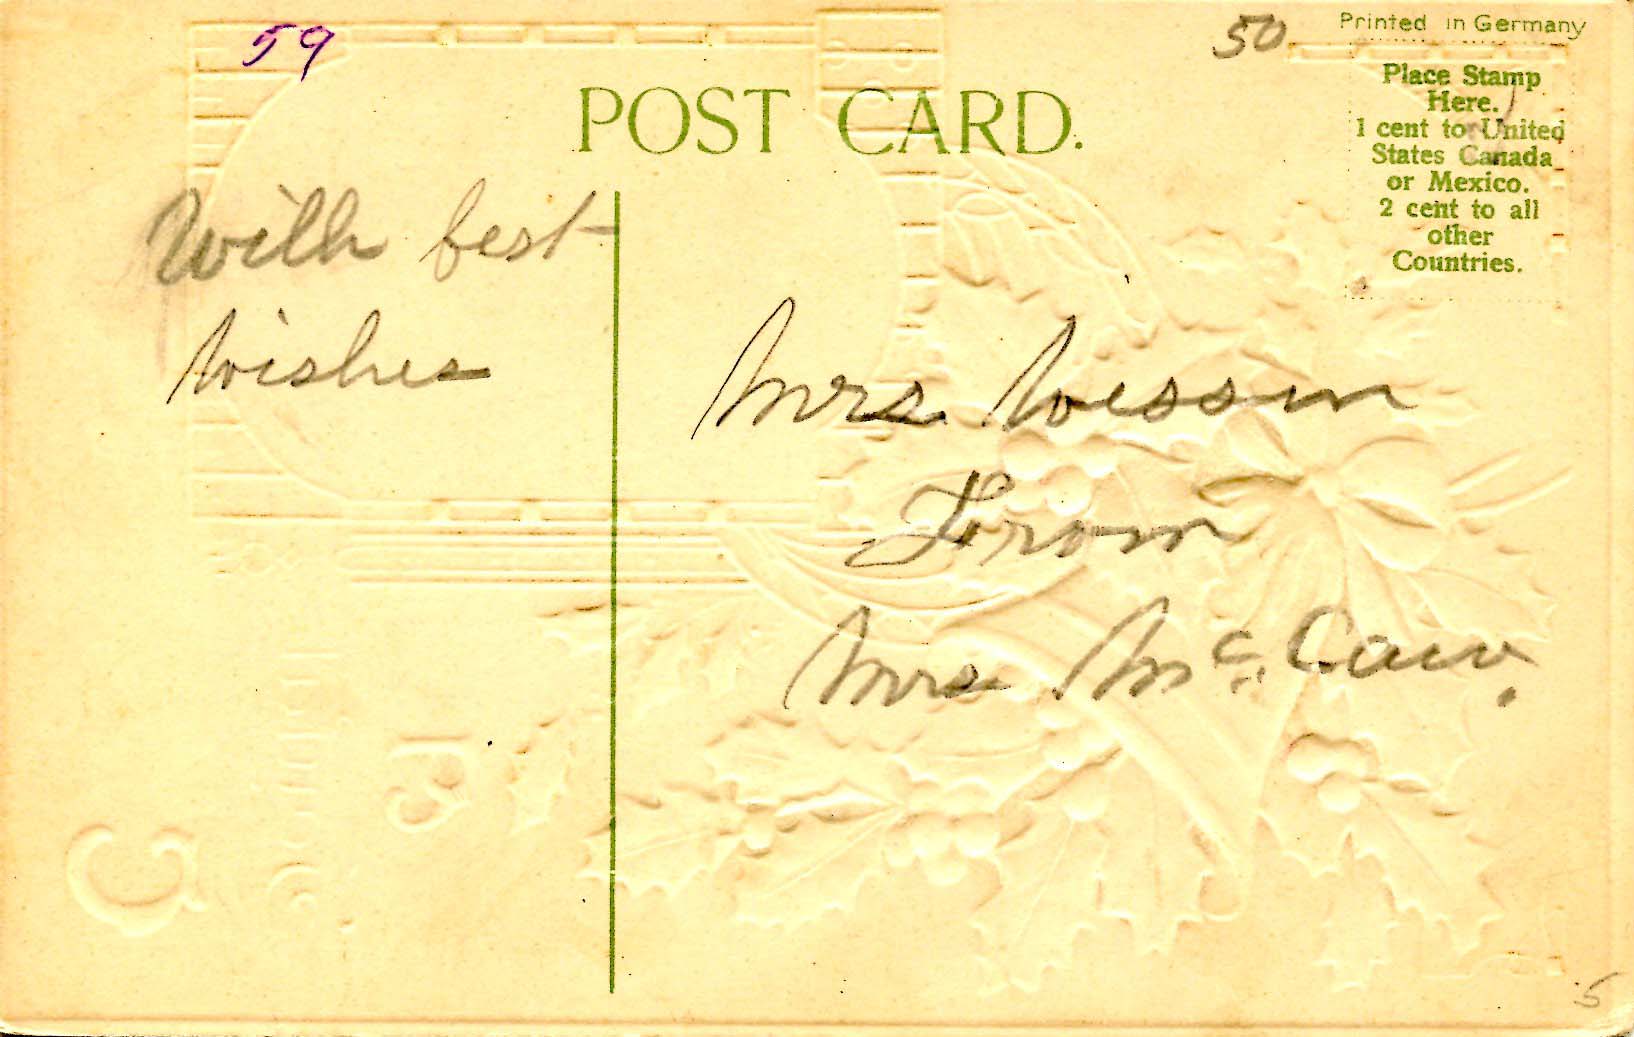 59
50
Printed in Germany
POST CARD.
Place Stamp
Here.
1 cent to United
States Canada
or Mexico.
2 cent to all
other
Countries.
With best
wishes
Mrs. Wesson
From
Mrs McCaw.
5